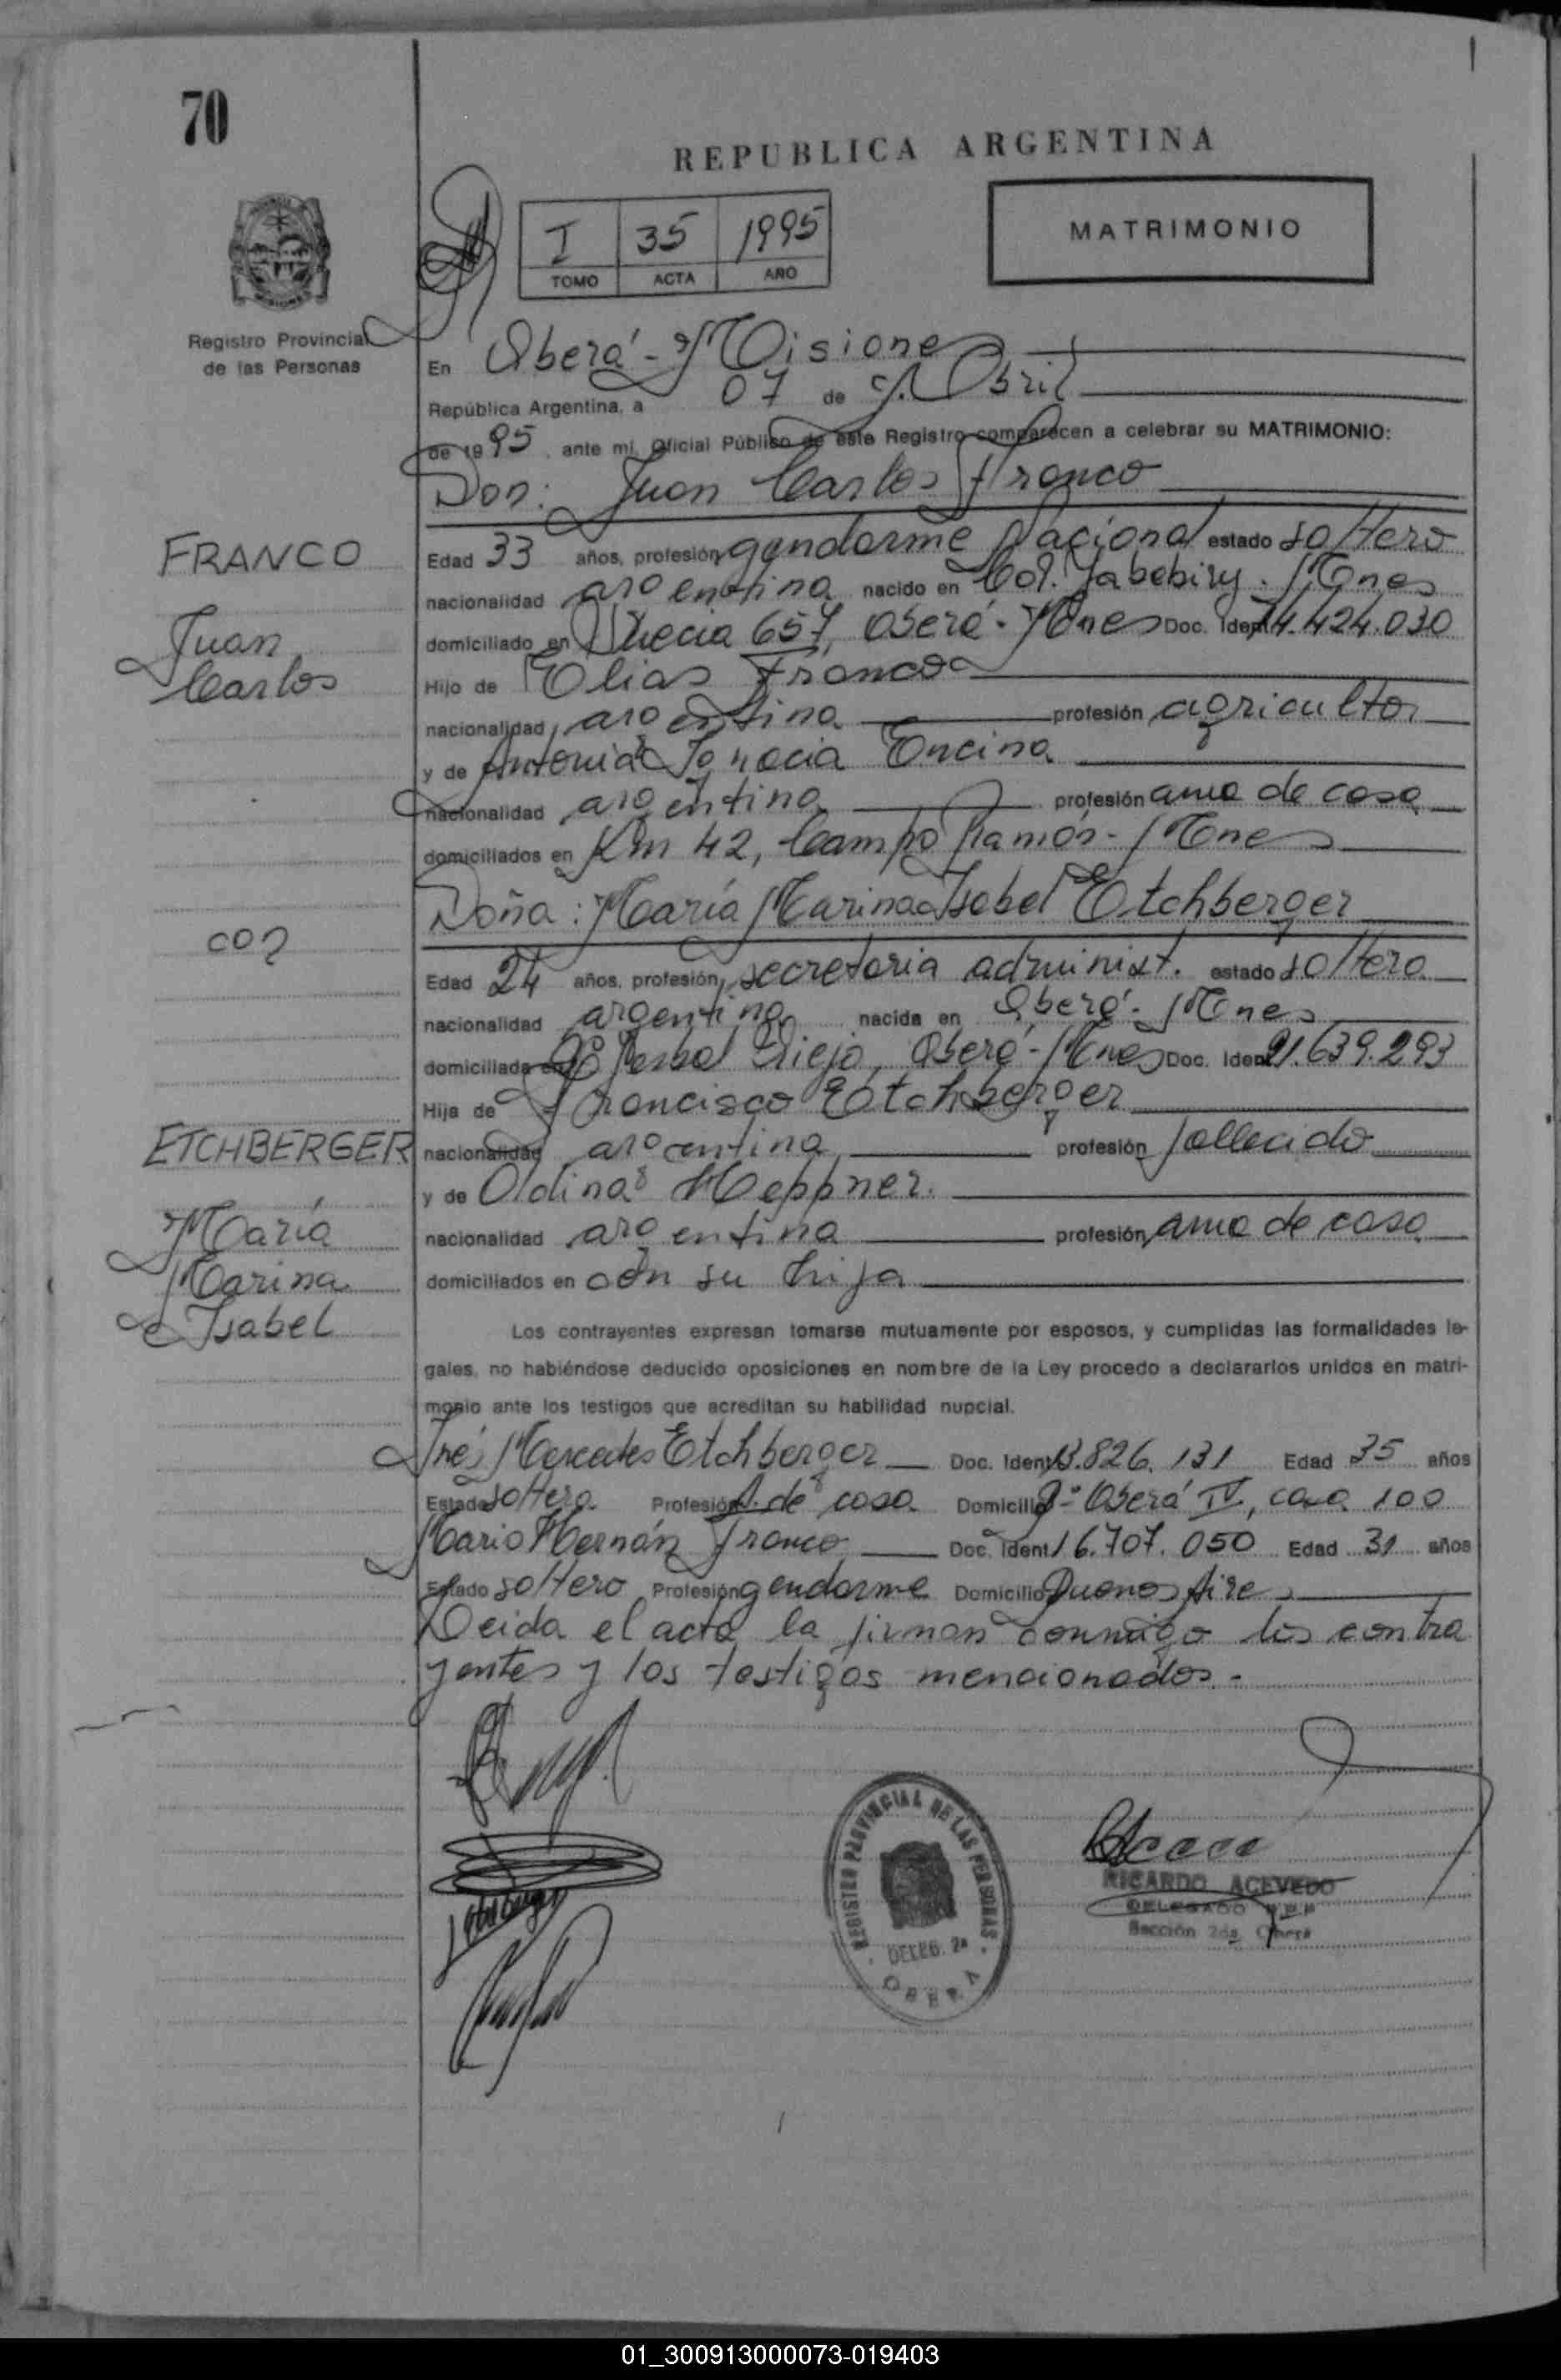 70
REPUBLICA ARGENTINA
I 35 1995
TOMO ACTA AÑO
MATRIMONIO
Registro Provincial
de las Personas
En Oberá - Misiones
República Argentina, a 07 de Abril
de 1995, ante mi, Oficial Público de este Registro comparecen a celebrar su MATRIMONIO:
Don: Juan Carlos Franco
FRANCO
Juan
Carlos
Edad 33 años, profesión gendarme Nacional estado soltero
nacionalidad argentina nacido en Col. Yabebiry. Mnes
domiciliado en Suecia 657, Oberá - Mnes Doc. Ident. 14.424.030
Hijo de Elias Franco
nacionalidad argentina profesión agricultor
y de Antonia Ignacia Encina
nacionalidad argentina profesión ama de casa
domiciliados en Km 42, Campo Ramón - Mnes
Doña: María Marina Isabel Etchberger
con
Edad 24 años, profesión secretaria administ. estado soltera
nacionalidad argentina nacida en Oberá - Mnes
domiciliada en Viejo, Oberá - Mnes Doc. Ident. 21.639.293
Hija de Francisco Etchberger
ETCHBERGER
María
Marina
Isabel
nacionalidad argentina profesión fallecido
y de Oldina Heppner.
nacionalidad argentina profesión ama de casa
domiciliados en con su hija
Los contrayentes expresan tomarse mutuamente por esposos, y cumplidas las formalidades le-
gales, no habiéndose deducido oposiciones en nombre de la Ley procedo a declararlos unidos en matri-
monio ante los testigos que acreditan su habilidad nupcial.
Inés Mercedes Etchberger Doc. Ident. 13.826.131 Edad 35 años
Estado soltera Profesión A. de casa Domicilio Bº Oberá IV, casa 100
Mario Hernán Franco Doc. Ident. 16.707.050 Edad 31 años
Estado soltero Profesión gendarme Domicilio Buenos Aires
Leida el acta la firman conmigo los contra
yentes y los testigos mencionados.-
REGISTRO PROVINCIAL DE LAS PERSONAS
DELEG. 2ª
OBERA
RICARDO ACEVEDO
DELEGADO
Sección 2da. Oberá
01_300913000073-019403